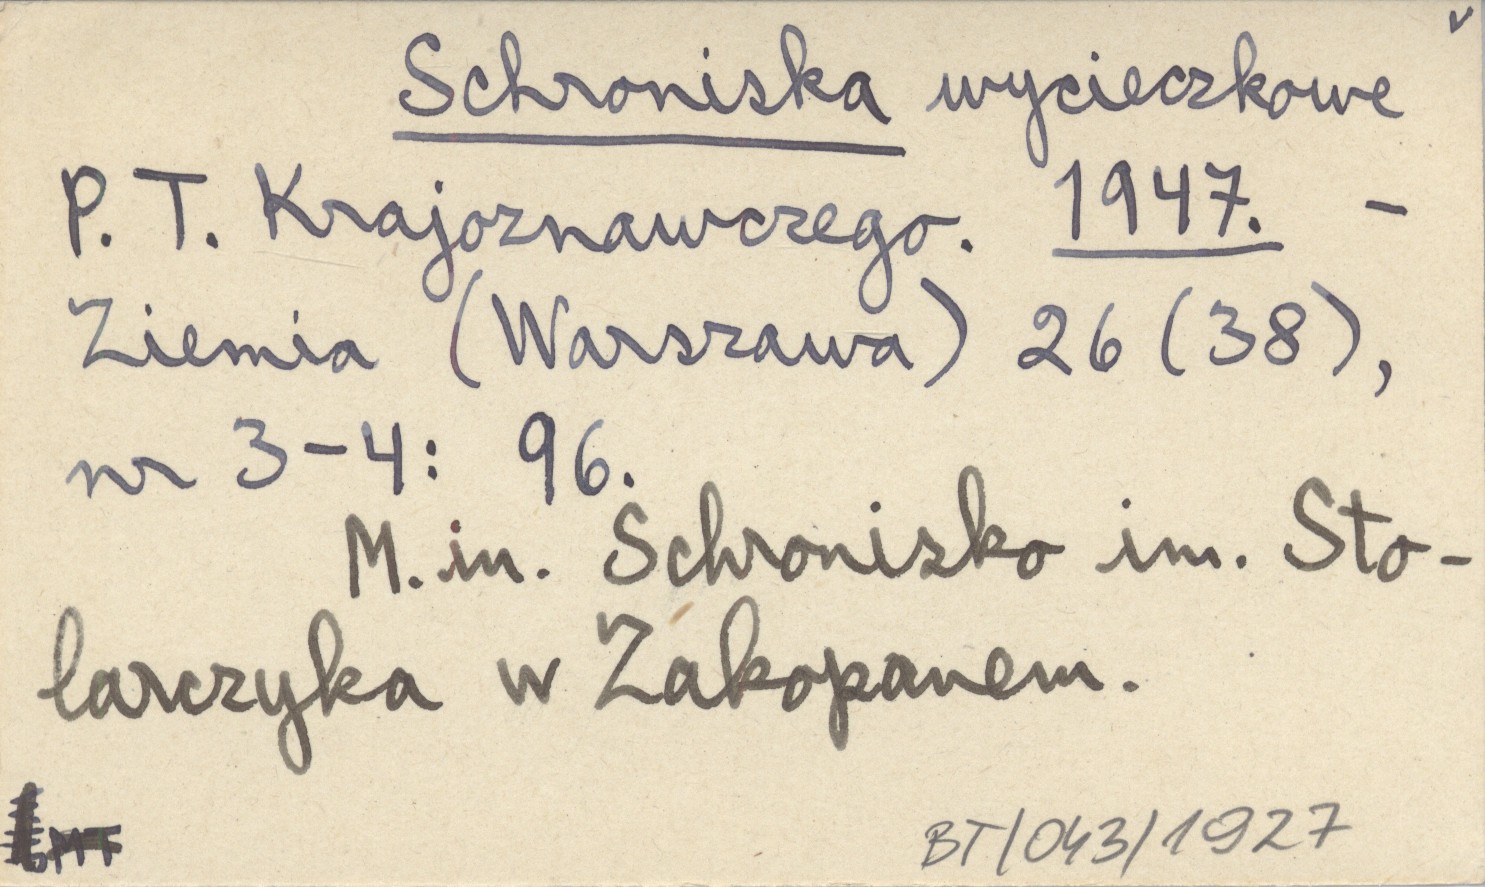 Schroniska wycieczkowe
P. T. Krajoznawczego. 1947. -
Ziemia (Warszawa) 26 (38),
nr 3-4: 96.
M. in. Schronisko im. Sto-
larczyka w Zakopanem.
BT/043/1927